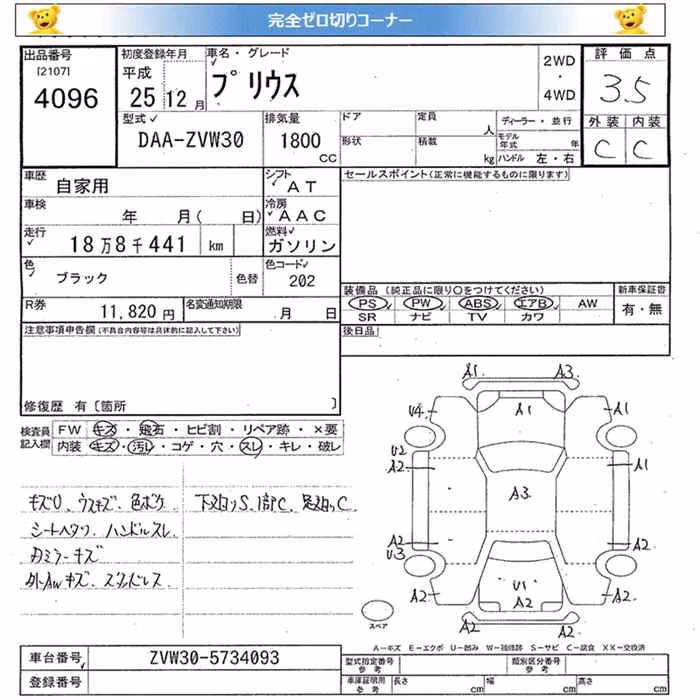 完全ゼロ切りコーナー
出品番号
[2107]
4096
初度登録年月
平成
25 12 月
車名・グレード
プリウス
2WD
・
4WD
評価点
3.5
外装 内装
C C
型式
DAA-ZVW30
排気量
1800
CC
ドア
定員
人
ディーラー・並行
形状
積載
kg
モデル年式
年
ハンドル 左・右
車歴
自家用
シフト
AT
車検
年 月( 日)
冷房
AAC
走行
18万8千441 km
燃料
ガソリン
色
ブラック
色替
色コード
202
R券
11,820円
名変通知期限
月 日
セールスポイント(正常に機能するものに限ります)
装備品(純正品に限り○をつけてください)
新車保証書
PS PW ABS エアB AW
有・無
SR ナビ TV カワ
後日品
注意事項申告欄(不具合内容等は具体的に記入して下さい)
修復歴 有〔箇所 〕
検査員記入欄
FW キズ・飛石・ヒビ割・リペア跡・×要
内装 キズ・汚れ・コゲ・穴・スレ・キレ・破レ
キズU、ウスキズ、色ボケ
シートヘタリ、ハンドルスレ
Fミラーキズ
外AWキズ、ズタボレス
下廻りS、1部C、足廻りC
A1 A3
U4 A1 A1
U2
A2 A1
A3
A2 A2
U3
U1
A2 A2 A2
A2 A2
スペア
A-キズ E-エクボ U-凹み W-補修跡 S-サビ C-腐食 XX-交換済
車台番号 ZVW30-5734093
登録番号
型式指定番号
参考
類別区分番号
参考
車庫証明用
参考
長さ cm 幅 cm 高さ cm